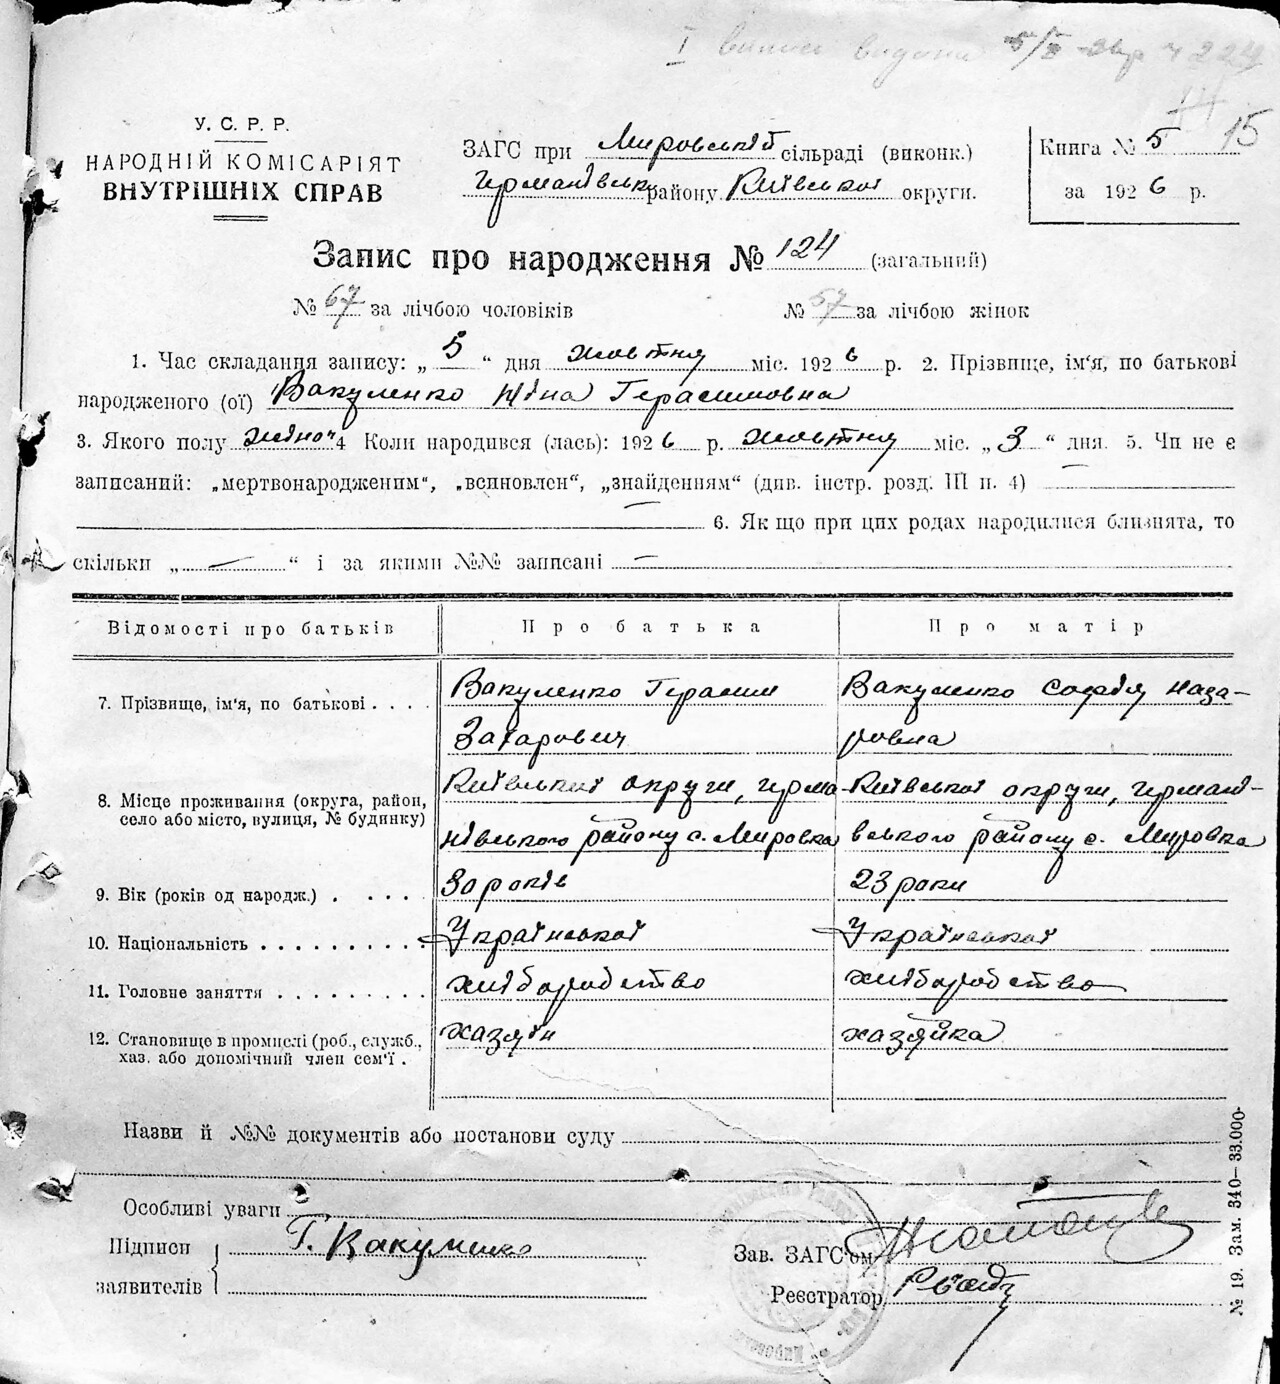 І випис видани 5/X
15
У. С. Р. Р.
НАРОДНІЙ КОМІСАРІЯТ
ВНУТРІШНІХ СПРАВ
ЗАГС при Мировській сільраді (виконк.)
Германівськ району Київської округи.
Книга № 5
за 1926 р.
Запис про народження № 124 (загальний)
№ 67 за лічбою чоловіків № 57 за лічбою жінок
1. Час складання запису: „ 5 “ дня жовтня міс. 1926 р. 2. Прізвище, ім'я, по батькові
народженого (ої) Вакуленко Ніна Герасимовна
3. Якого полу жіноч 4 Коли народився (лась): 1926 р. жовтня міс. „ 3 “ дня. 5. Чи не є
записаний: „мертвонародженим“, „всиновлен“, „знайденням“ (див. інстр. розд. III п. 4) —
— 6. Як що при цих родах народилися близнята, то
скільки „ — “ і за якими №№ записані —
Відомості про батьків Про батька Про матір
7. Прізвище, ім'я, по батькові . . . . Вакуленко Герасим Захарович Вакуленко Софія Наза-
ровна
8. Місце проживання (округа, район,
село або місто, вулиця, № будинку) Київської округи, Герма
нівського району с. Мировка Київської округи, Германі-
вського району с. Мировка
9. Вік (років од народж.) . . . . . 30 років 23 роки
10. Національність . . . . . . . . . . Української Української
11. Головне заняття . . . . . . . . . хліборобство хліборобство
12. Становище в промислі (роб., служб.,
хаз. або допомічний член сем'ї . хазяїн хазяйка
Назви й №№ документів або постанови суду
Особливі уваги
Підписи
заявителів Г. Вакуленко
Зав. ЗАГС'ом
Реєстратор
№ 19. Зам. 340—33.000